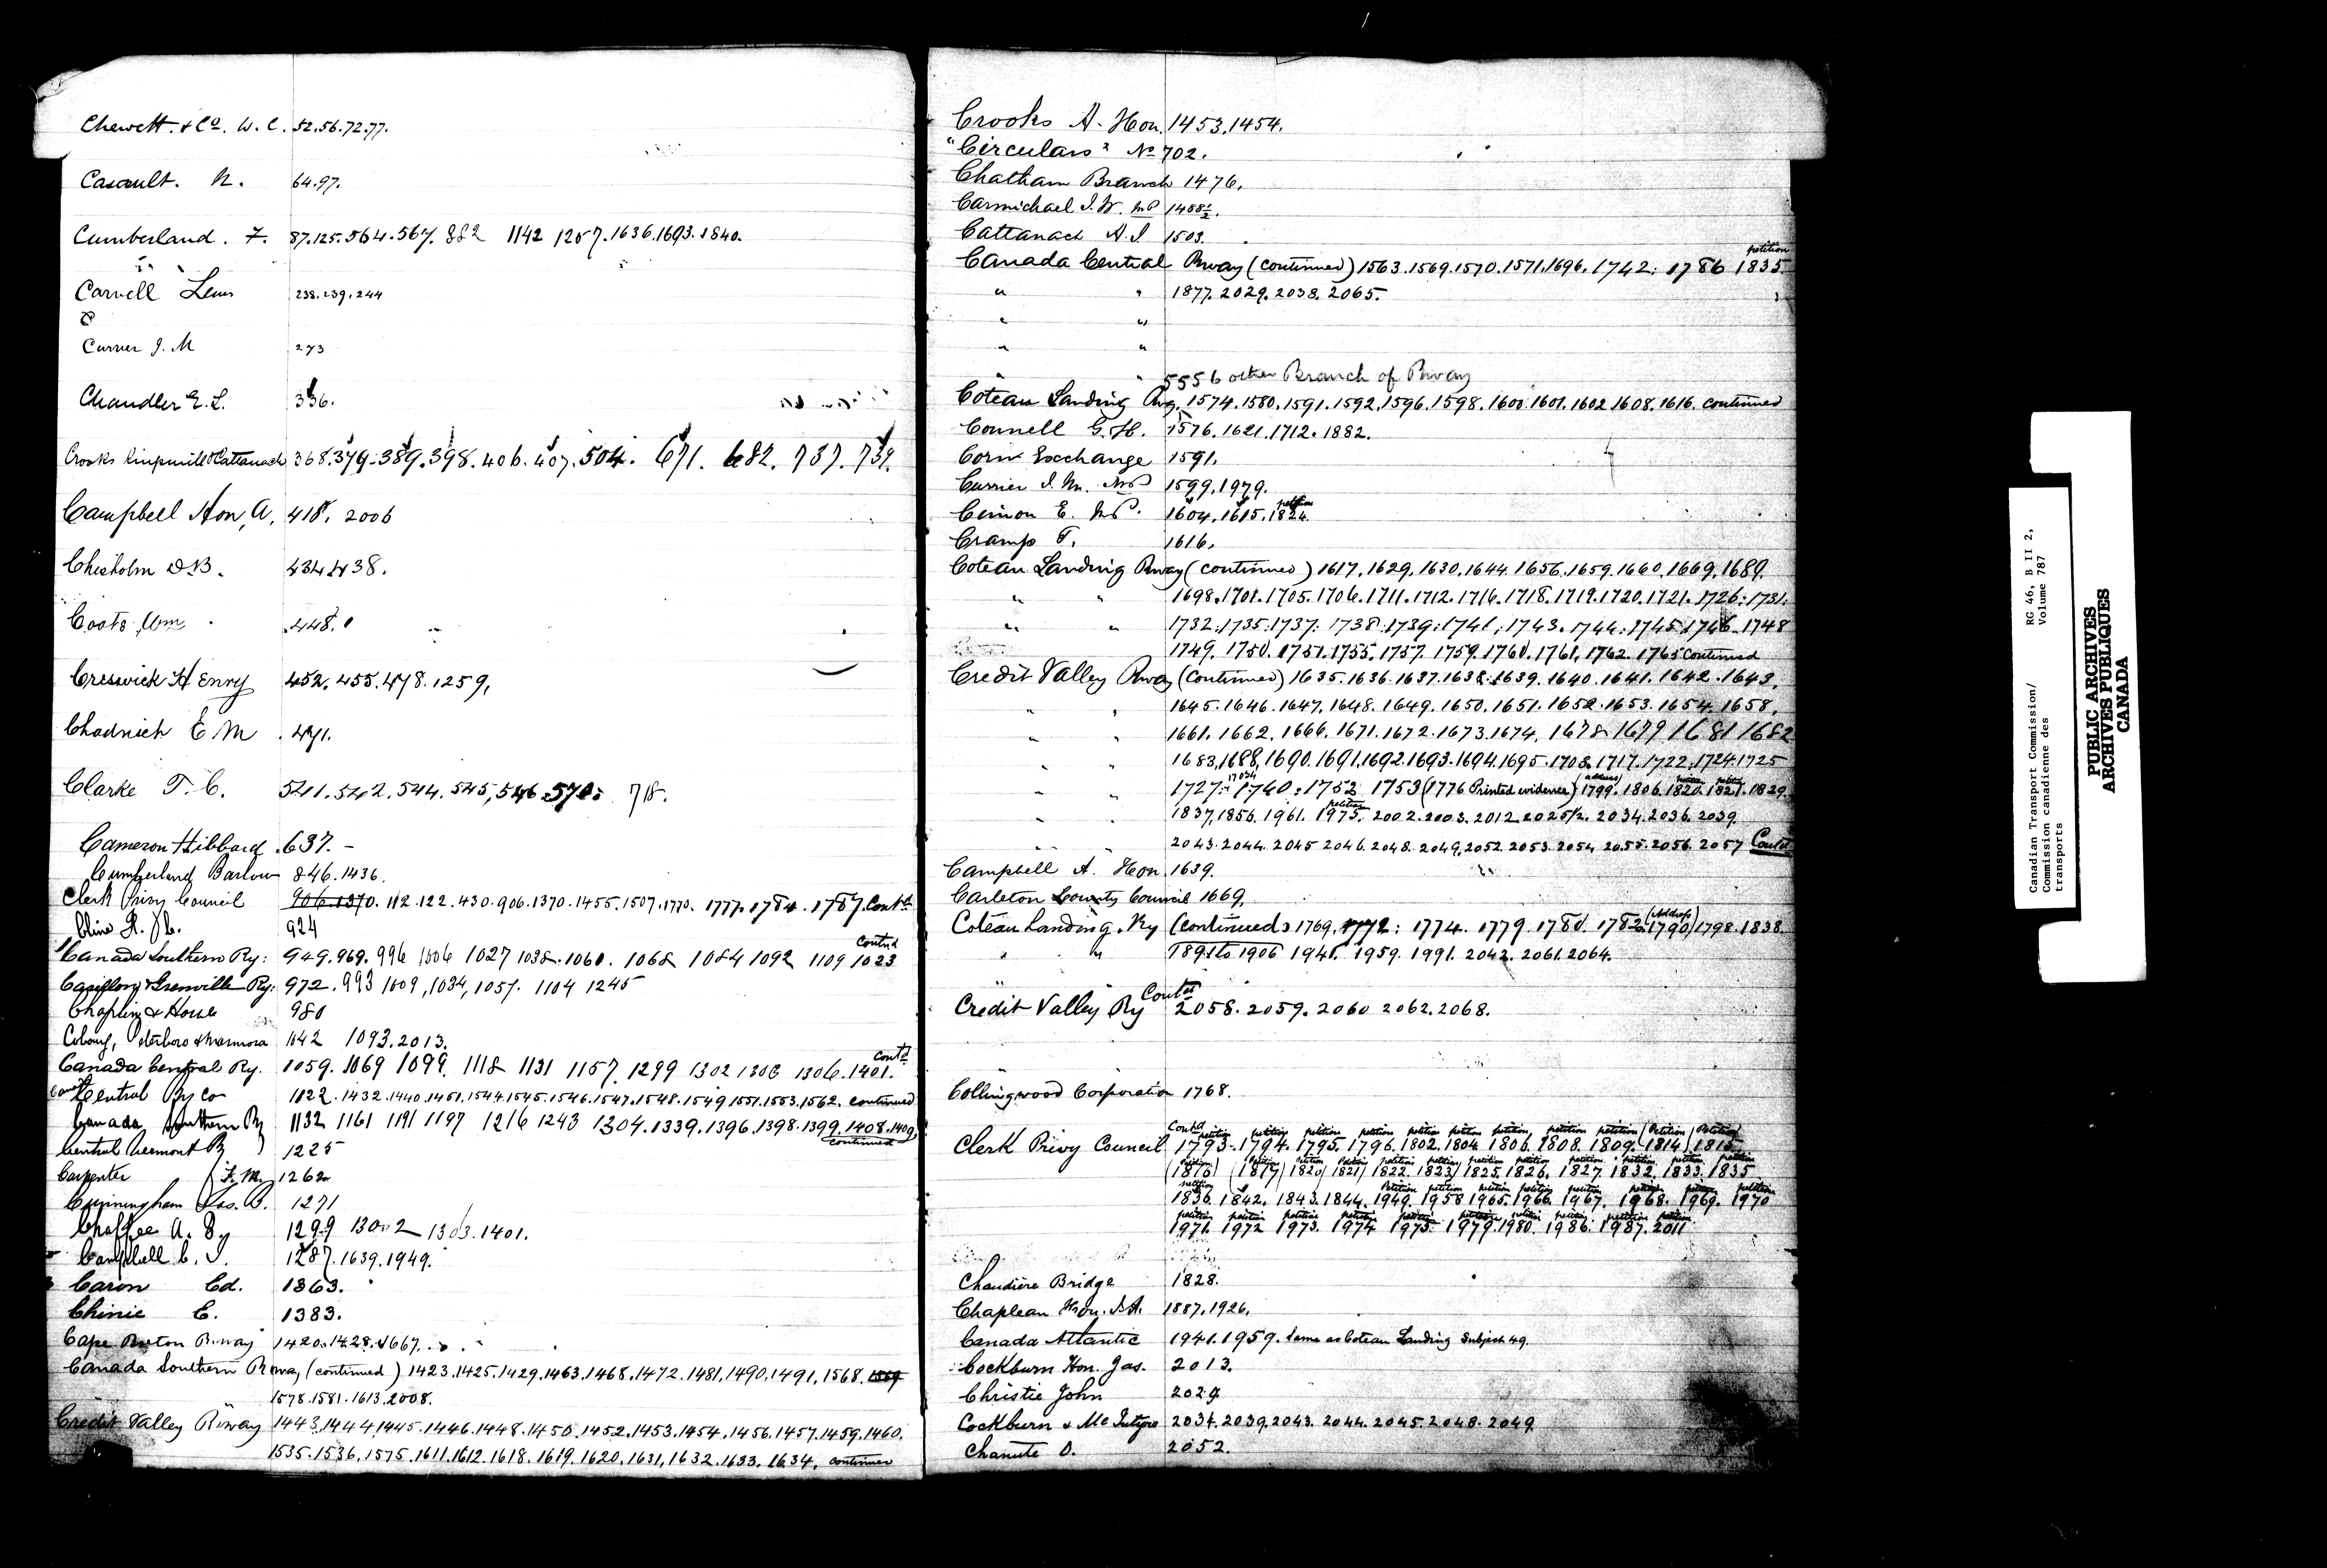 Chewett. & Co. W. C. 52.56.72.77.
Casault. N. 64.97.
Cumberland. F. 87.125.564.567. 882 1142 1257.1636.1693.1840.
Carvell Lewis 238.239.244
Currier J. M 273
Chandler E. L. 336.
Crooks Kingsmill & Cattanach 368.379.389.398.406.407.504. 671. 682. 737. 739.
Campbell Hon, A. 418. 2006
Chisholm D.B. 434.438.
Coots Wm 448.
Creswick Henry 452.455.478.1259,
Chadwick E M 471.
Clarke T. C. 541.542.544.545,546.570: 718.
Cameron Hibbard. 637. -
Cumberland Barlow 846.1436.
Clerk Privy Council 906.1370. 112.122.430.906.1370.1455.1507.1770. 1777.1784.1787. Contd
Cline 924
Canada Southern Ry: 949.969.996 1006 1027 1038.1060. 1068 1084 1092 1109 1023 Contnd
Carillon & Grenville Ry: 972.993 1009, 1034, 1057. 1104 1245
Chaplin & House 980
Cobourg, Peterboro & Marmora 1042 1093.2013.
Canada Central Ry. 1059. 1069 1099. 1118 1131 1157. 1299 1302 1303 1306.1401. Contd
Canada Central Ry Co 1122.1432.1440.1451.1544.1545.1546.1547.1548.1549 1551.1553.1562. continued
Canada Southern Ry 1132 1161 1191 1197 1216 1243 1304.1339.1396.1398.1399.1408.1409. continued
Central Vermont Ry 1225
Carpenter (F. M. 1262
Cunningham Jas. 1271
Chaffee A. B. 1299 1302 1303.1401.
Campbell C. J. 1287.1639.1949.
Caron Ed. 1363.
Chinic E. 1383.
Cape Breton Rway 1420.1428.1667.
Canada Southern Rway (continued) 1423.1425.1429.1463.1468.1472.1481.1490.1491.1568. 1569
1578.1581.1613.2008.
Credit Valley Rway 1443.1444.1445.1446.1448.1450.1452.1453.1454.1456.1457.1459.1460.
1535.1536.1575.1611.1612.1618.1619.1620.1631.1632.1633.1634. continued
Crooks A. Hon. 1453.1454.
"Circulars" No 702.
Chatham Branch 1476.
Carmichael J. W. MP 1488½.
Cattanach A. J 1503.
Canada Central Rway (continued) 1563.1569.1570.1571.1696.1742: 1786 1835 petition
" " 1877.2029.2038.2065.
" "
" "
" " 5556 other Branch of Rway
Coteau Landing Rwy. 1574.1580.1591.1592.1596.1598.1600.1601.1602 1608.1616. continued
Connell G. H. 1576.1621.1712.1882.
Corn Exchange 1591.
Currier J. M. MP 1599.1979.
Cimon E. MP. 1604.1615.1824. petition
Cramp T. 1616.
Coteau Landing Rway (continued) 1617.1629.1630.1644.1656.1659.1660.1669.1689.
" " 1698.1701.1705.1706.1711.1712.1716.1718.1719.1720.1721.1726:1731:
" " 1732:1735:1737: 1738:1739:1741:1743.1744:1745.1746.1748
1749.1750.1751.1755.1757.1759.1760.1761.1762.1765 Continued
Credit Valley Rway (Continued) 1635.1636.1637.1638.1639.1640.1641.1642.1643.
" " 1645.1646.1647.1648.1649.1650.1651.1652.1653.1654.1658.
" " 1661.1662.1666.1671.1672.1673.1674. 1678 1679 1681 1682
" " 1683.1688.1690.1691.1692.1693.1694.1695.1708.1717.1722.1724.1725
" " 1727: 1740:1752 1753 (1776 Printed evidence) (address) 1799.1806.1820.1821.1829.
" " 1837.1856.1961. 1975. petition 2002.2003.2012.2025½.2034.2036.2039.
" " 2043.2044.2045 2046.2048.2049.2052.2053.2054 2055.2056.2057 Contd
Campbell A. Hon 1639.
Carleton County Council 1669.
Coteau Landing. Ry (continued) 1769.1772: 1774. 1779. 1780. 1782 (Address) 1790) 1798.1838.
" " 1891 to 1906 1941. 1959. 1991. 2042. 2061.2064.
Credit Valley Ry Contd 2058.2059.2060 2062.2068.
Collingwood Corporation 1768.
Contd petition petition petition petition petition petition petition petition petition (Petition (Petition
Clerk Privy Council 1793.1794.1795.1796.1802.1804.1806.1808.1809.1814.1815
(1816) (1817) 1820 1821 1822.1823 1825.1826.1827.1832.1833.1835
1836.1842.1843.1844.1949.1958 1965.1966.1967.1968.1969.1970
petition petition petition petition petition petition petition petition petition
1971.1972 1973.1974 1975.1979.1980.1986.1987.2011
Chaudière Bridge 1828.
Chapleau Hon. J.A. 1887.1926.
Canada Atlantic 1941.1959. Same as Coteau Landing Subject 49.
Cockburn Hon. Jas. 2013.
Christie John 2029
Cockburn & McIntyre 2034.2039.2043.2044.2045.2048.2049.
Chanute O. 2052.
Canadian Transport Commission/ RG 46, B II 2,
Commission canadienne des Volume 787
transports
PUBLIC ARCHIVES
ARCHIVES PUBLIQUES
CANADA